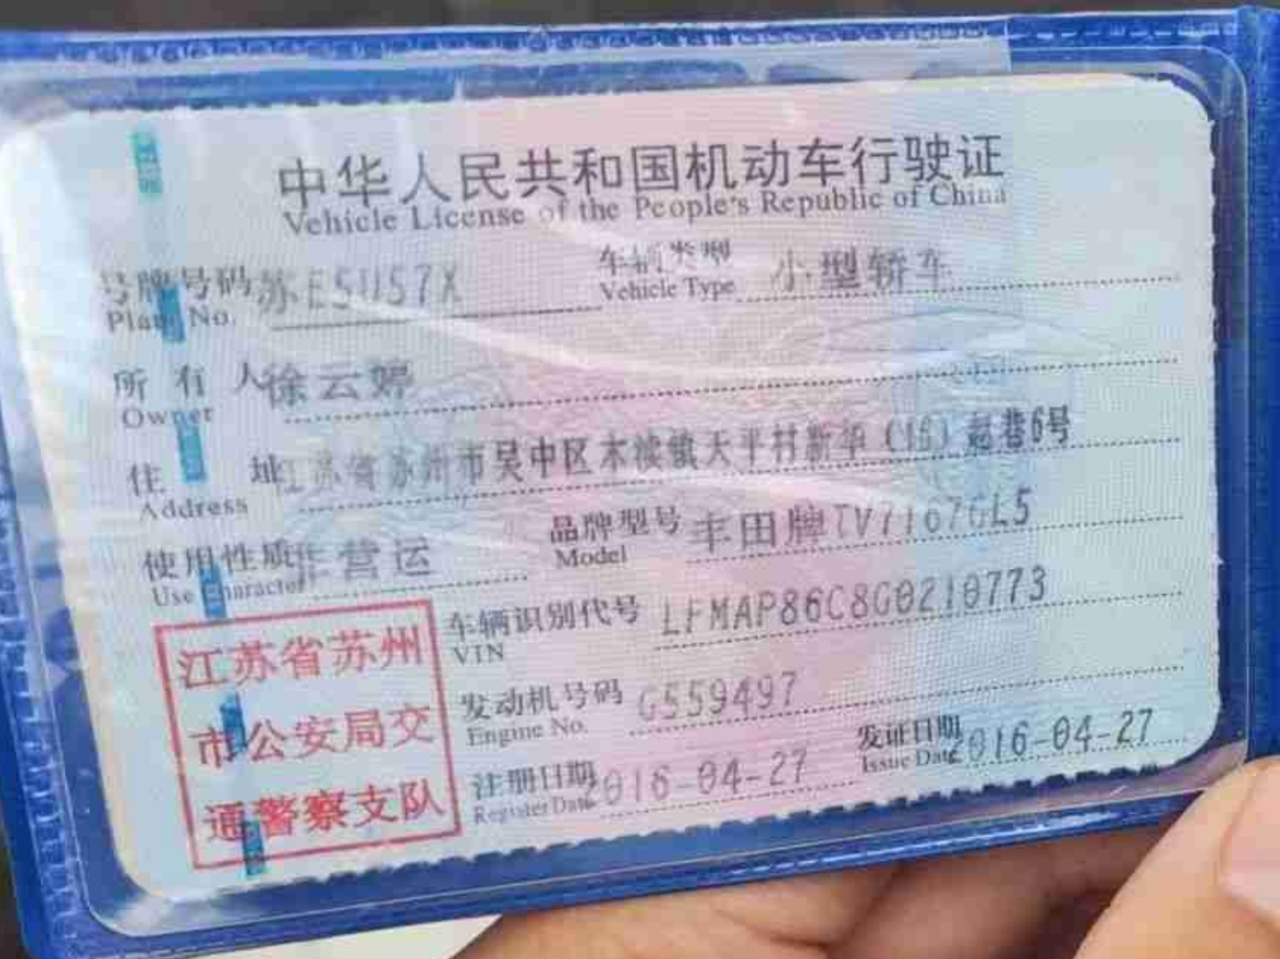 中华人民共和国机动车行驶证
Vehicle License of the People's Republic of China
号牌号码 苏E5U57X 车辆类型 小型轿车
Plate No. Vehicle Type
所有人 徐云婷
Owner
住址 江苏省苏州市吴中区木渎镇天平村新华(16)超巷6号
Address
使用性质 非营运 品牌型号 丰田牌TV7167GL5
Use Character Model
车辆识别代号 LFMAP86C8G0210773
VIN
发动机号码 G559497
Engine No.
注册日期 2016-04-27 发证日期 2016-04-27
Register Date Issue Date
江苏省苏州
市公安局交
通警察支队